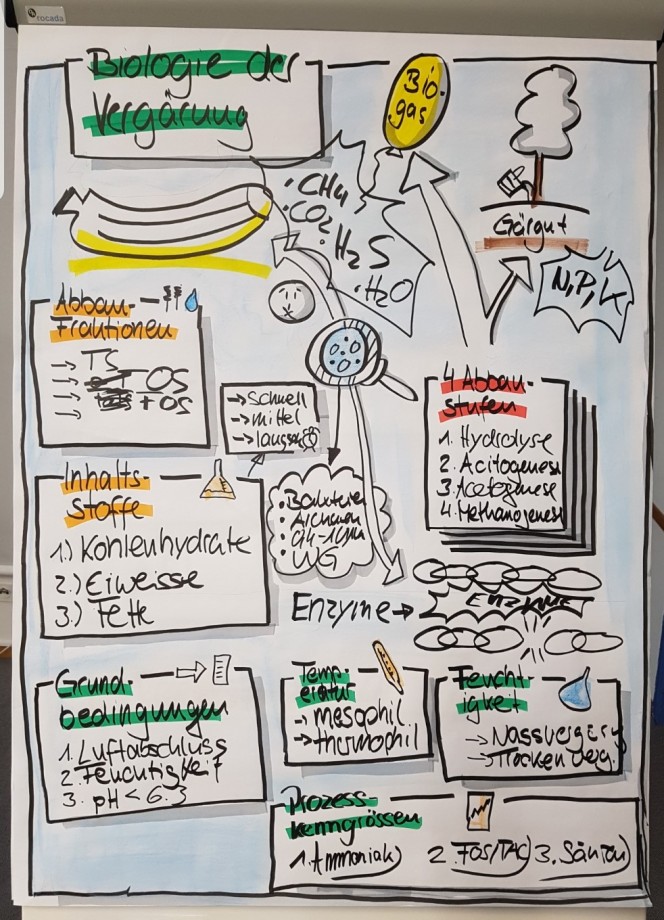 rocada
Biologie der
Vergärung
Bio-
gas
CH4
CO2
H2S
H2O
Gärgut
N, P, K
Abbau-
Fraktionen
→ TS
→ OS
→ + OS
→
→ schnell
→ mittel
→ langsam
4 Abbau-
stufen
1. Hydrolyse
2. Acitogenese
3. Acetogenese
4. Methanogenese
Inhalts-
Stoffe
1.) Kohlenhydrate
2.) Eiweisse
3.) Fette
• Bakterien
•
•
• WG
Enzyme →
ENZYME
Grund-
bedingungen
1. Luftabschluss
2. Feuchtigkeit
3. pH < 6.3
Temp-
eratur
→ mesophil
→ thermophil
Feucht-
igkeit
→ Nassvergärg
→ Trockenverg.
Prozess-
kenngrössen
1. Ammoniak) 2. FOS/TAC) 3. Säuren)